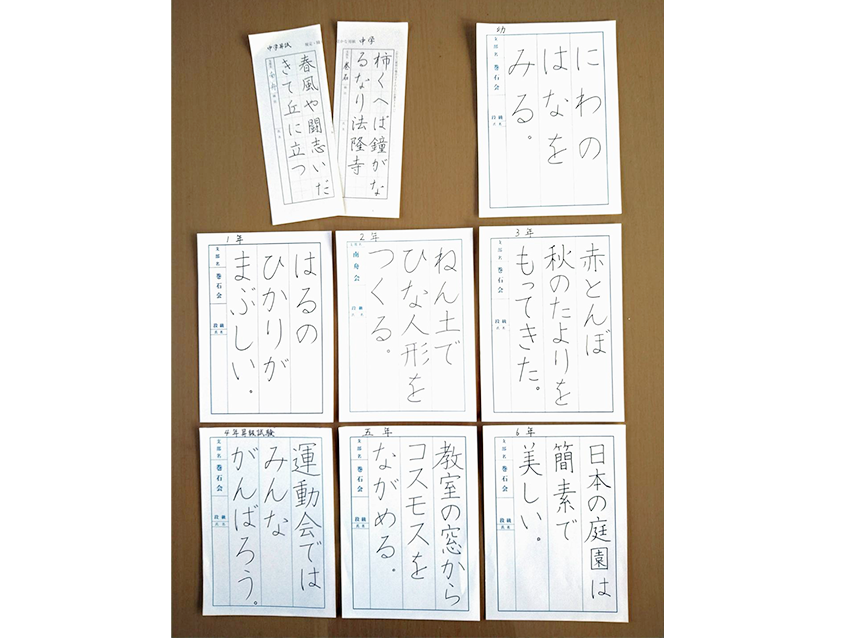 中学昇試
春風や闘志いだ
きて丘に立つ
中学
巻石
柿くへば鐘がな
るなり法隆寺
幼
支部名 巻石会
段級
にわの
はなを
みる。
1年
支部名 巻石会
段級
はるの
ひかりが
まぶしい。
2年
南舟会
ねん土で
ひな人形を
つくる。
3年
支部名 巻石会
段級
赤とんぼ
秋のたよりを
もってきた。
4年昇級試験
支部名 巻石会
段級
運動会では
みんな
がんばろう。
五年
支部名 巻石会
段級
教室の窓から
コスモスを
ながめる。
6年
支部名 巻石会
段級
日本の庭園は
簡素で
美しい。